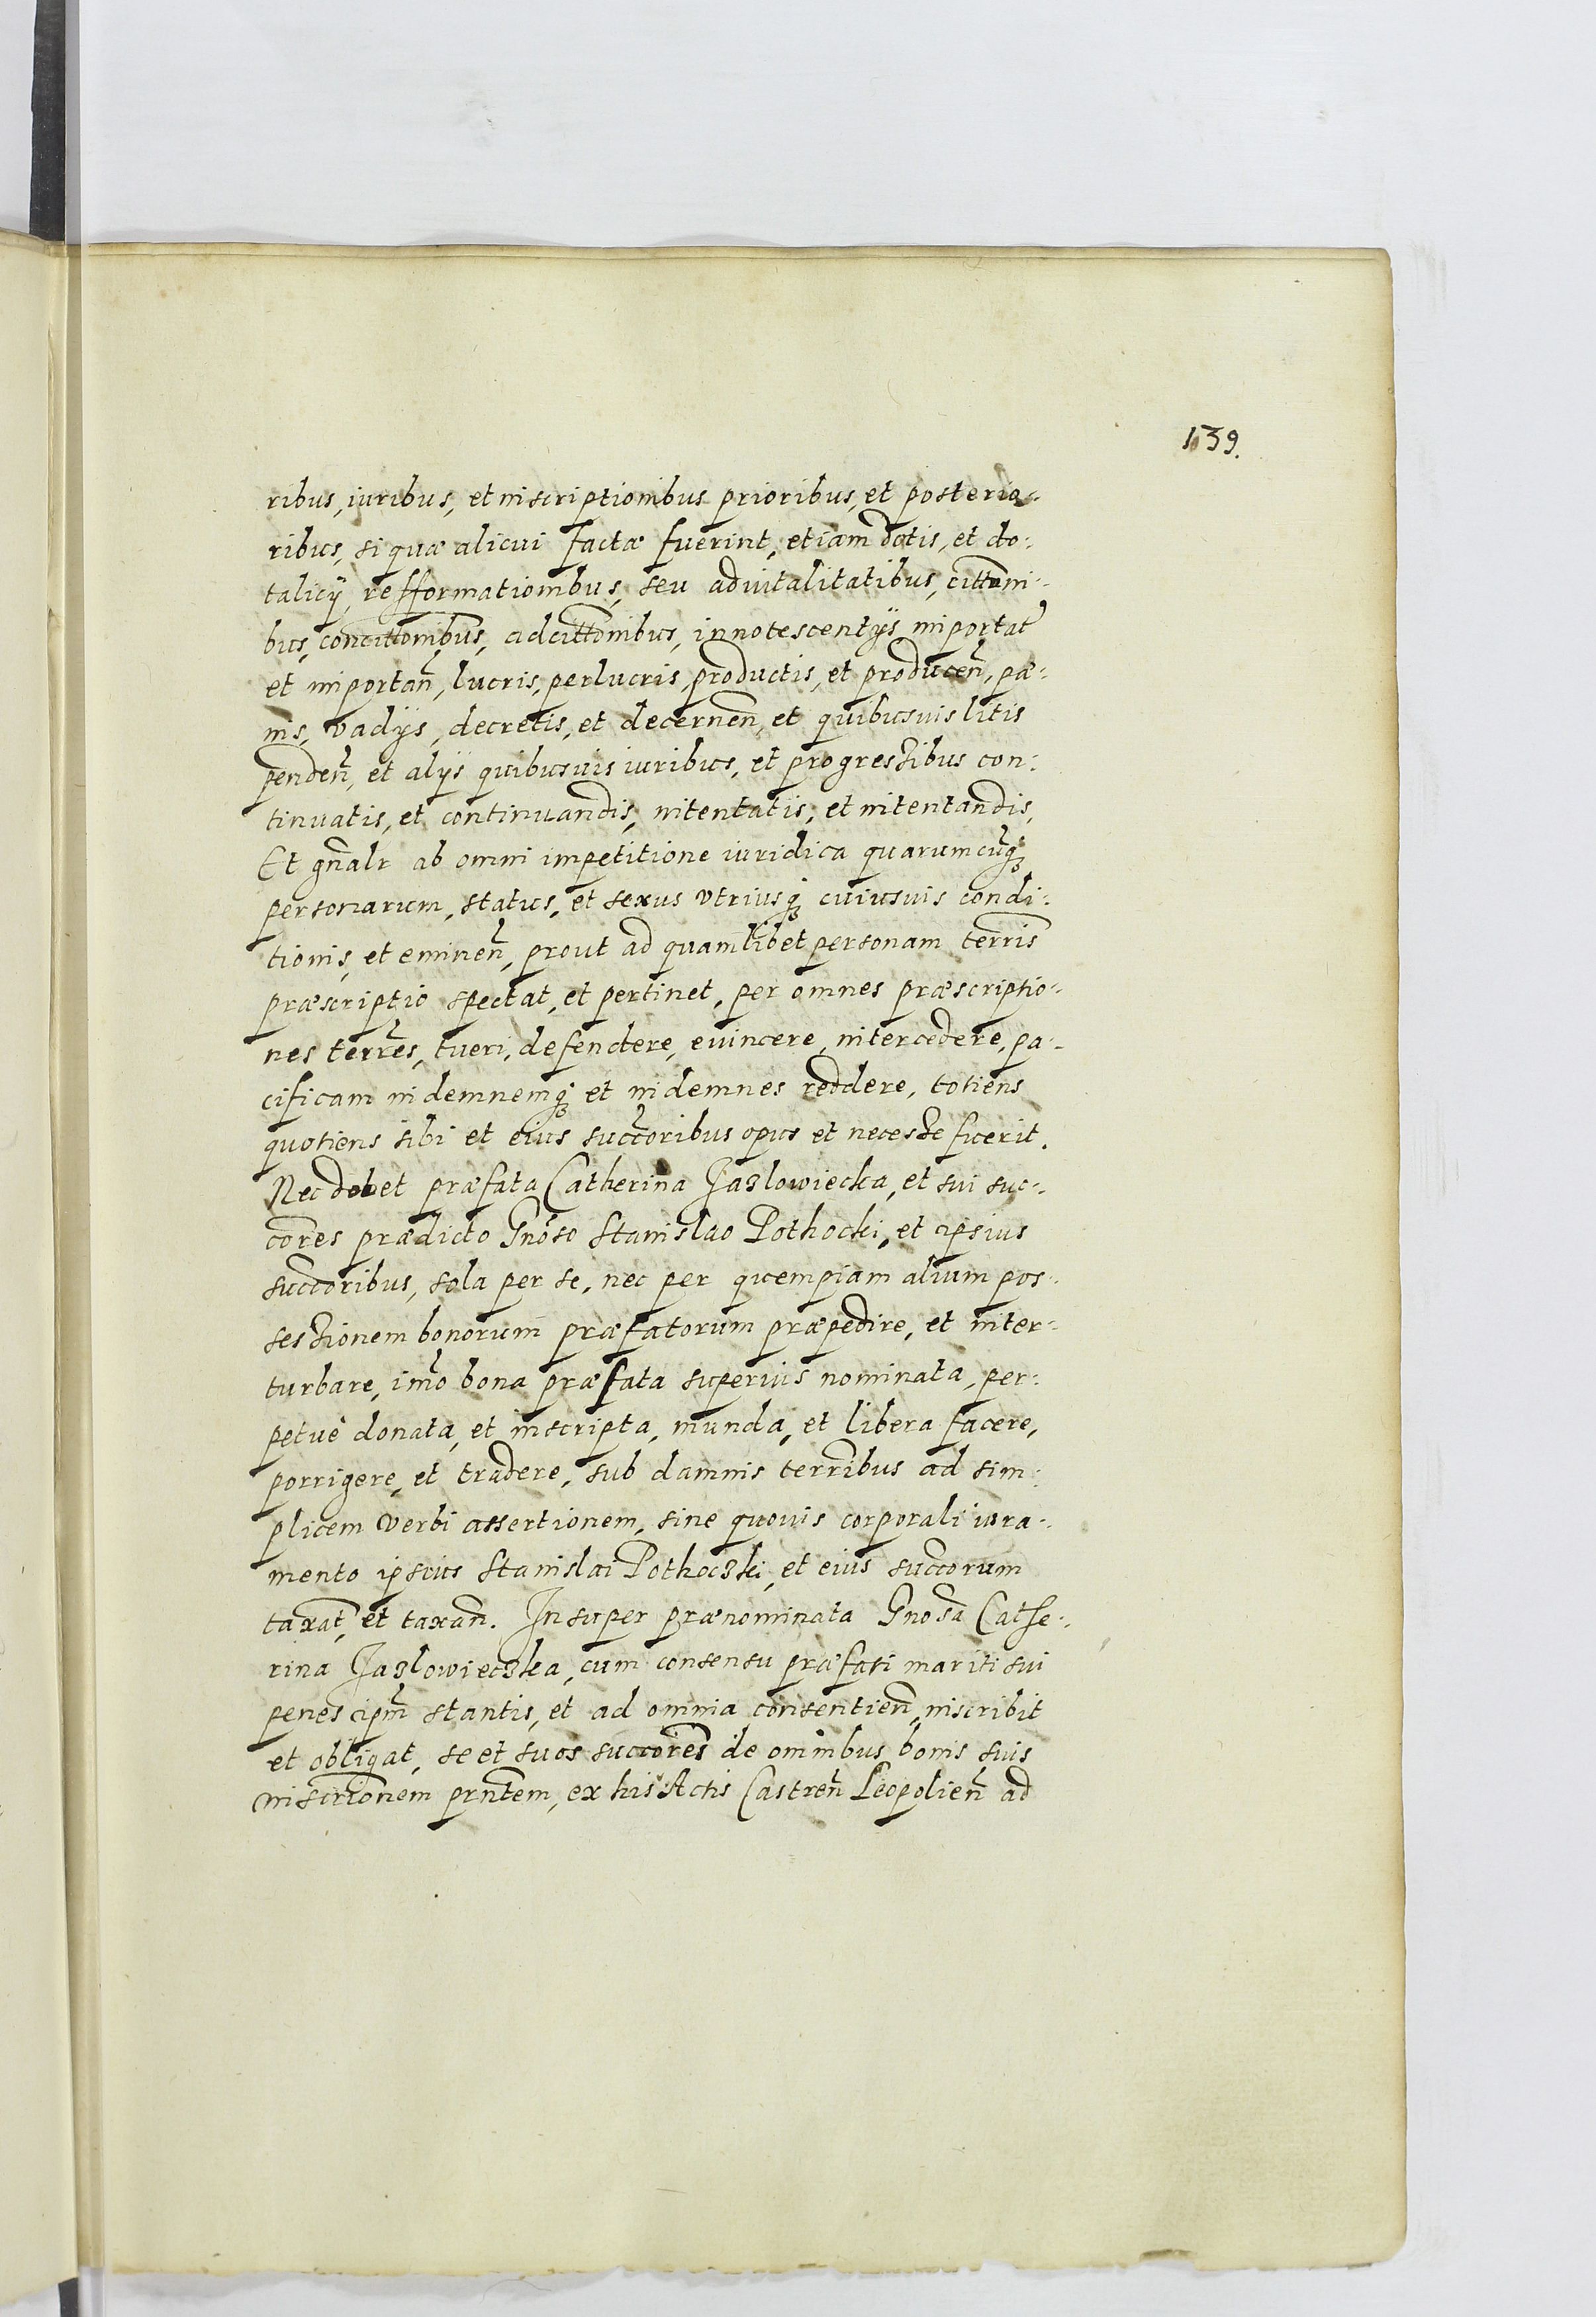 139.
ribus, iuribus, et inscriptionibus prioribus, et posterio-
ribus, si quæ alicui factæ fuerint, etiam dotis, et do:
talicÿ, refformationibus, seu aduitalitatibus, citt͞oni-
bus, concitt͞onibus, adcitt͞onibus, innotescentÿs importat͞
et importan͞, lucris, perlucris, productis, et producen͞, pæ-
nis, vadÿs, decretis, et decernen͞, et quibusuis litis
penden͞, et alÿs quibusuis iuribus, et progressibus con:
tinuatis, et continuandis, intentatis, et intentandis,
Et gn͞alr ab omni impetitione iuridica quarumcuq͞ꝫ
personarum, status, et sexus vtriusqꝫ cuiusuis condi:
tionis, et eminen͞, prout ad quamlibet personam terris͞
præscriptio spectat, et pertinet, per omnes præscriptio-
nes terr͞es, tueri, defendere, euincere, intercedere, pa-
cificam indemnemqꝫ et indemnes reddere, totiens
quotiens sibi et eius succ͞oribus opus et necesse fuerit.
Nec debet præfata Catherina Jazlowiecka, et sui suc-
c͞ores prædicto Gn͞oso Stanislao Pothocki, et ipsius
succ͞oribus, sola per se, nec per quempiam alium pos-
sessionem bonorum præfatorum præpedire, et inter-
turbare, im͞o bona præfata superius nominata, per:
petuè donata, et inscripta, munda, et libera facere,
porrigere, et tradere, sub damnis terr͞ibus ad sim:
plicem verbi assertionem, sine quouis corporali iura-
mento ipsius Stanislai Pothoczki, et eius succ͞orum
taxat͞, et taxan͞. Insuper prænominata Gnosa͞ Cathe-
rina Jazlowieczka, cum consensu præfati mariti sui
penes ipm͞ stantis, et ad omnia consentien͞, inscribit
et obligat, se et suos succ͞ores de omnibus bonis suis
inscri͞onem prn͞tem, ex his Actis Castren͞ Leopolien͞ ad